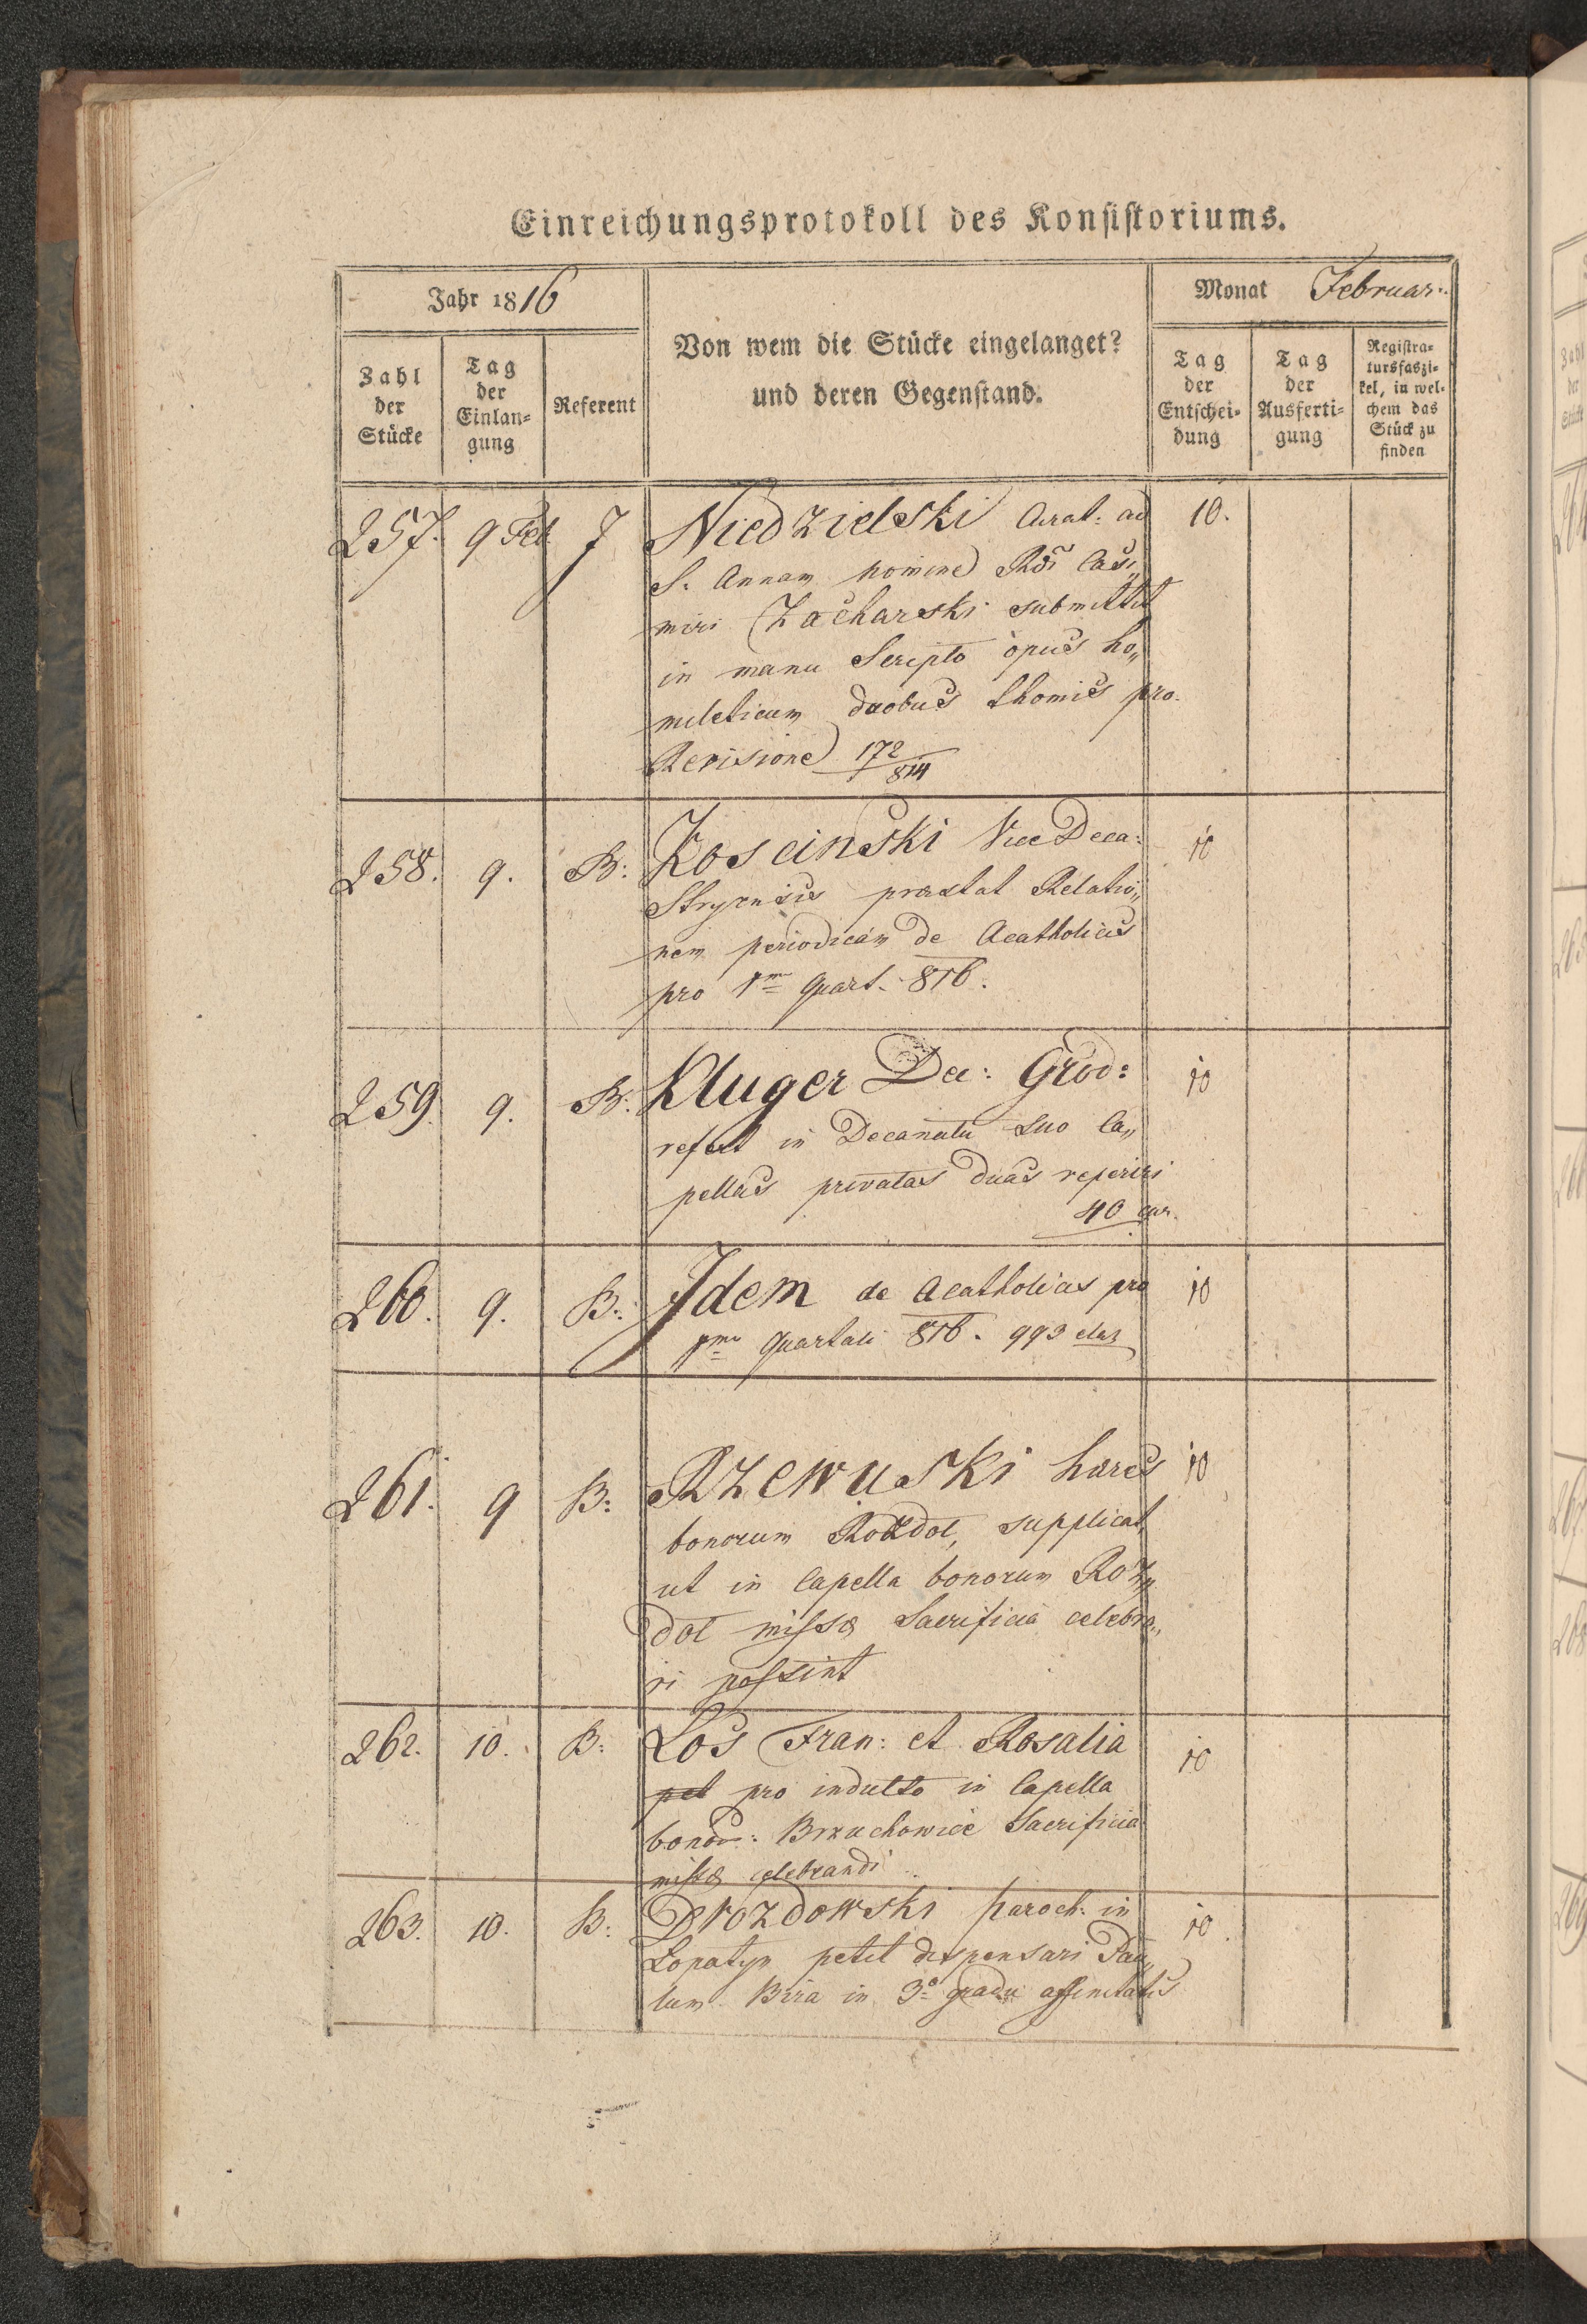 Einreichungsprotokoll des Konsistoriums.
Jahr 1816
Von wem die Stücke eingelanget?
und deren Gegenstand.
Monat Februar.
Zahl
der
Stücke
Tag
der
Einlan=
gung
Referent
Tag
der
Entschei=
dung
Tag
der
Ausferti=
gung
Registra=
tursfaszi=
kel, in wel=
chem das
Stück zu
finden
257. 9 Feb 7 Niedzielski Curat: ad 10.
S. Annam nomine Rdi Casi„
miri Zacharski submittit
in manu Scripto opus ho„
mileticum duobus thomis pro
Revisione 172/814
258. 9. B: Koscinski Vice Deca: 10
Stryensis praestat Relatio„
nem periodicam de Acatholicis
pro 1m Quart. 816.
259. 9. B: Kluger Dec: Grod: 10
refert in Decanatu suo Ca„
pellas privatas duas reperiri
40 cur.
260. 9. B: Idem de Acatholicis pro 10
1mo Quartali 816. 993
261. 9 B: Rzewuski hæres 10
bonorum Rozdol, supplicat,
ut in Capella bonorum Roz„
dol missæ Sacrificia celebra„
ri possint
262. 10. B: Los Fran: et Rosalia 10
pet pro indulto in Capella
bonor: Brzuchowice Sacrificia
missæ celebrandi
263. 10. B: Drozdowski Paroch: in 10.
Lopatyn petit dispensari Pau„
lum Bira in 3o gradu affinitatis